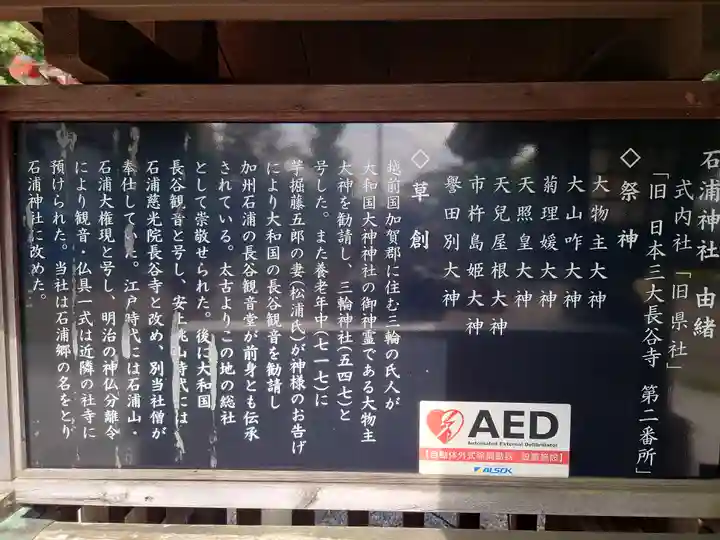 石浦神社 由緒
式内社「旧県社」
「旧 日本三大長谷寺 第二番所」
◇祭神
大物主大神
大山咋大神
菊理媛大神
天照皇大神
天兒屋根大神
市杵島姫大神
譽田別大神
◇草創
越前国加賀郡に住む三輪の氏人が
大和国大神神社の御神霊である大物主
大神を勧請し、三輪神社(五四七)と
号した。また養老年中(七一七)に
芋掘藤五郎の妻(松浦氏)が神様のお告げ
により大和国の長谷観音を勧請し
加州石浦の長谷観音堂が前身とも伝承
されている。太古よりこの地の総社
として崇敬せられた。後に大和国
長谷観音と号し、安土桃山時代には
石浦慈光院長谷寺と改め、別当社僧が
奉仕していた。江戸時代には石浦山・
石浦大権現と号し、明治の神仏分離令
により観音・仏具一式は近隣の社寺に
預けられた。当社は石浦郷の名をとり
石浦神社に改めた。
AED
Automated External Defibrillator
【自動体外式除細動器 設置施設】
ALSOK